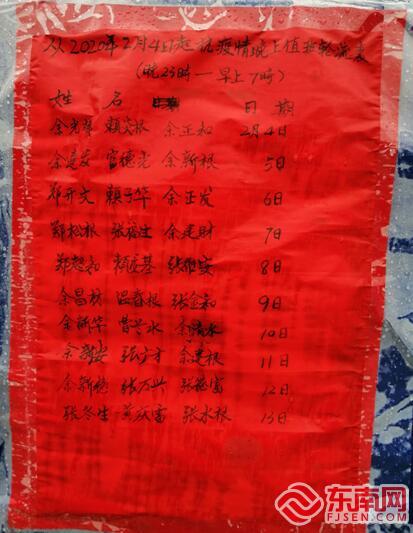 从2020年2月4日起抗疫情晚上值班轮流表
(晚23時—早上7時)
姓 名 日 期
余光華 賴炎根 余正和 2月4日
余建发 官德光 余新根 5日
郑开文 賴子华 余正发 6日
郑松根 张裕过 余建財 7日
郑想和 张雅安 8日
余昌梅 温春根 张金和 9日
余新华 曾兴水 余 水 10日
余 安 张才才 余建根 11日
余新德 张万兴 张裕富 12日
张冬生 黄庆富 张水根 13日
东南网
FJSEN.COM